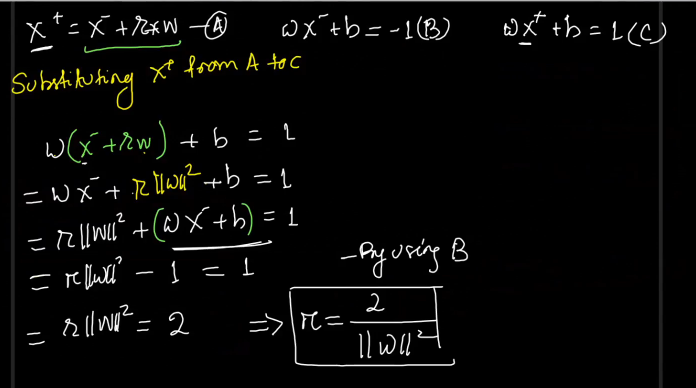 x⁺ = x⁻ + r*w – Ⓐ wx⁻ + b = -1 (B) wx⁺ + b = 1 (C)
Substituting x⁺ from A to C
w(x⁻ + rw) + b = 1
= wx⁻ + r||w||² + b = 1
= r||w||² + (wx⁻ + b) = 1
= r||w||² - 1 = 1 - By using B
= r||w||² = 2 => r = 2 / ||w||²